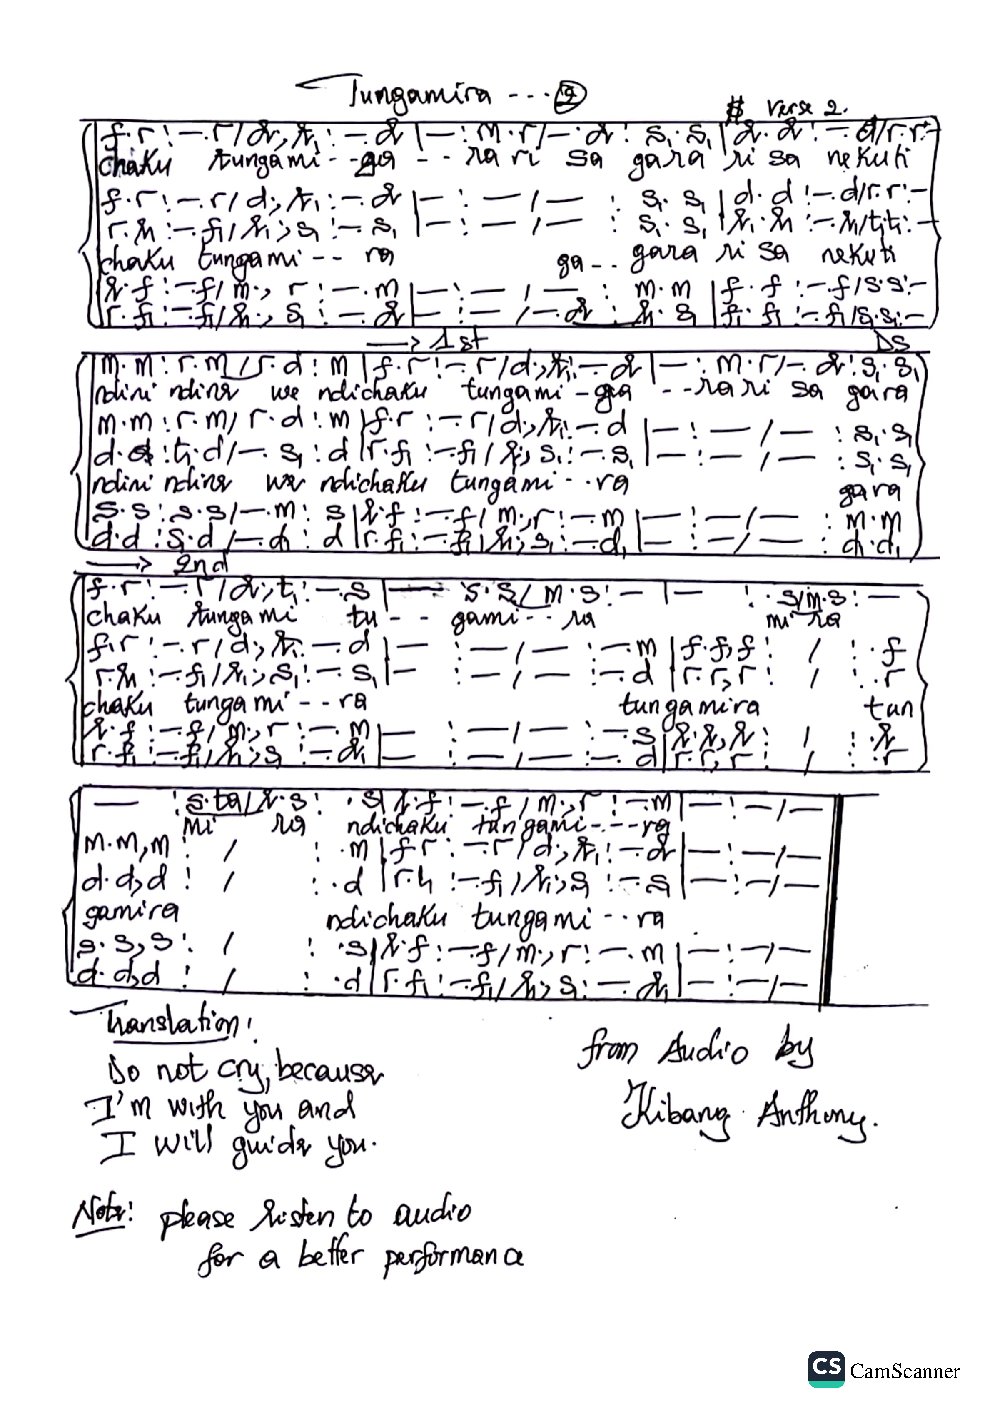 Tungamira --- 2
verse 2.
f.r :-.r/d,t₁ :-.d |- : m.r/-.d : s₁.s₁ | d.d :-.d/r.r:-
chaku tungami--ga -- rari sa gara ri sa nekuti
f.r :-.r/d;t₁ :-.d |- : -/- : s₁.s₁ | d.d :-.d/r.r:-
r.l₁ :-.f₁/l₁;s₁ :-.s₁ |- : -/- : s₁.s₁ | l₁.l₁ :-.l₁/t₁.t₁:-
chaku tungami-- ra ga.. gara ri sa nekuti
l.f :-.f/m., r :-.m |- : -/- : m.m | f.f :-.f/s.s:-
r.f₁ :-.f₁/l₁; s₁ :-.d |- : -/-.d : d₁.s₁ | f₁.f₁ :-.f₁/s₁.s₁:-
→ 1st DS
m.m : r.m/r.d : m | f.r :-.r/d;t₁:-.d |- : m.r/-.d: s₁.s₁
ndini ndine we ndichaku tungami-ga --rari sa gara
m.m : r.m/r.d : m | f.r :-.r/d;t₁:-.d |- : -/- : s₁.s₁
d.d : t₁.d/-.s₁ : d | r.f₁ :-.f₁/l₁; s₁:-.s₁ |- : -/- : s₁.s₁
ndini ndine we ndichaku tungami--ra gara
s.s : s.s/-.m : s | l.f :-.f/m;r :-.m |- : -/- : m.m
d.d : s₁.d/-.d₁ : d | r.f₁ :-.f₁/l₁; s₁:-.d₁ |- : -/- : d₁.d₁
→ 2nd
f.r :-.r/d;t₁ :-.s |- : s.s/m.s :- |- : s/m.s : -
chaku tungami tu-- gami--ra mi ra
f.r :-.r/d;t₁ :-.d |- : -/- :-.m | f.f,f : / : .f
r.l₁ :-.f₁/l₁;s₁ :-.s₁ |- : -/- :-.d | r.r,r : / : .r
chaku tungami--ra tungamira tun
l.f :-.f/m;r :-.m |- : -/- :-.s | l.l,l : / : .l
r.f₁ :-.f₁/l₁;s₁ :-.d₁ |- : -/- :-.d | r.r,r : / : .r
- : s.ta/l.s : .s | l.f :-.f/m;r :-.m |- : -/-
mi ra ndichaku tungami---ra
m.m,m : / : .m | f.r :-.r/d;t₁ :-.d |- : -/-
d.d,d : / : .d | r.l₁ :-.f₁/l₁;s₁ :-.s₁ |- : -/-
gamira ndichaku tungami--ra
s.s,s : / : .s | l.f :-.f/m;r :-.m |- : -/-
d.d,d : / : .d | r.f₁ :-.f₁/l₁;s₁ :-.d₁ |- : -/-
Translation:
Do not cry, because
I'm with you and
I will guide you.
from Audio by
Kibang Anthony.
Note: please listen to audio
for a better performance
CS CamScanner